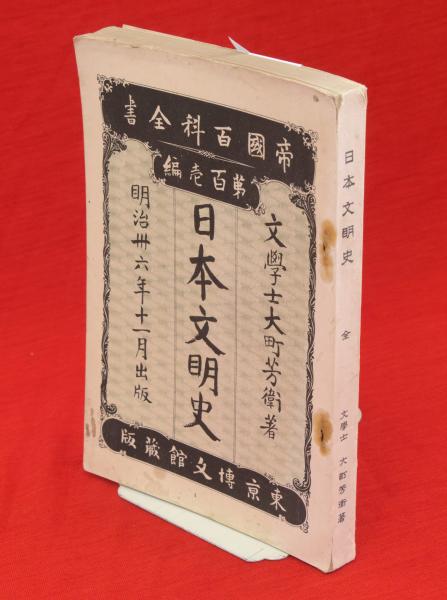 帝國百科全書
第百壱編
文學士大町芳衛著
日本文明史
明治卅六年十一月出版
東京博文館蔵版
日本文明史 全
文學士 大町芳衛著